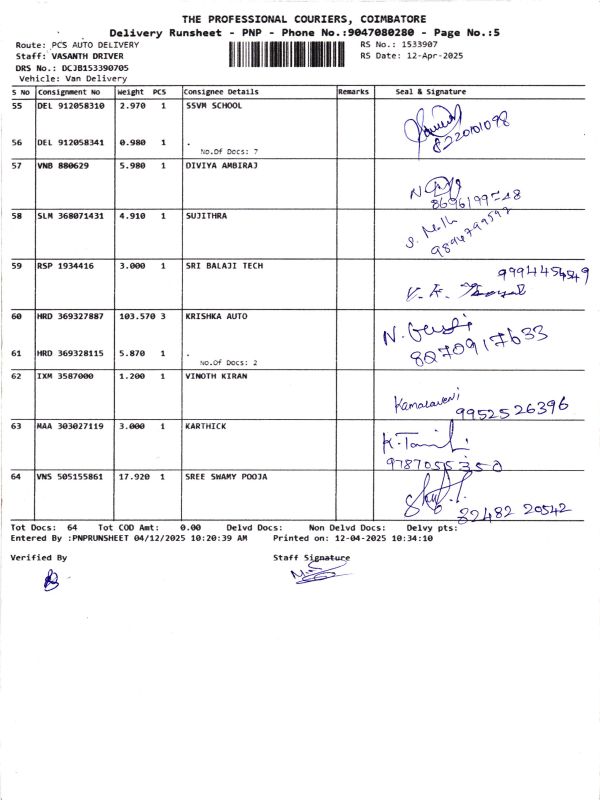 THE PROFESSIONAL COURIERS, COIMBATORE
Delivery Runsheet - PNP - Phone No.:9047080280 - Page No.:5
Route: PCS AUTO DELIVERY RS No.: 1533907
Staff: VASANTH DRIVER RS Date: 12-Apr-2025
DRS No.: DCJB153390705
Vehicle: Van Delivery
S No Consignment No Weight PCS Consignee Details Remarks Seal & Signature
55 DEL 912058310 2.970 1 SSVM SCHOOL
8220101098
56 DEL 912058341 0.980 1 .
No.Of Docs: 7
57 VNB 880629 5.980 1 DIVIYA AMBIRAJ
58 SLM 368071431 4.910 1 SUJITHRA
9894799597
59 RSP 1934416 3.000 1 SRI BALAJI TECH
9994454549
60 HRD 369327887 103.570 3 KRISHKA AUTO
8270917633
61 HRD 369328115 5.870 1 .
No.Of Docs: 2
62 IXM 3587000 1.200 1 VINOTH KIRAN
9952526396
63 MAA 303027119 3.000 1 KARTHICK
9787055350
64 VNS 505155861 17.920 1 SREE SWAMY POOJA
82482 20542
Tot Docs: 64 Tot COD Amt: 0.00 Delvd Docs: Non Delvd Docs: Delvy pts:
Entered By :PNPRUNSHEET 04/12/2025 10:20:39 AM Printed on: 12-04-2025 10:34:10
Verified By Staff Signature